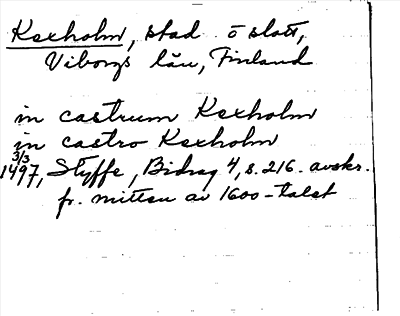 Kexholm, stad o slott,
Viborgs län, Finland
in castrum Kexholm
in castro Kexholm
3/3
1497, Styffe, Bidrag 4, s. 216. avskr.
fr. mitten av 1600-talet